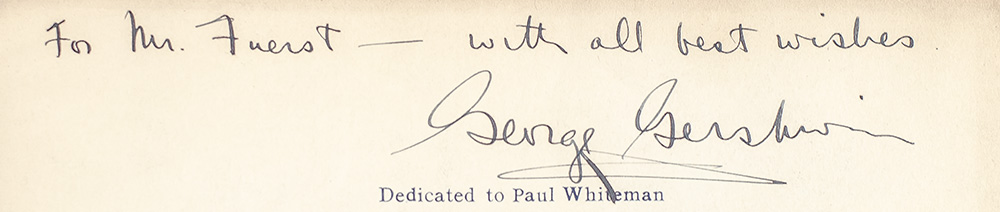 For Mr. Fuerst — with all best wishes.
George Gershwin
Dedicated to Paul Whiteman